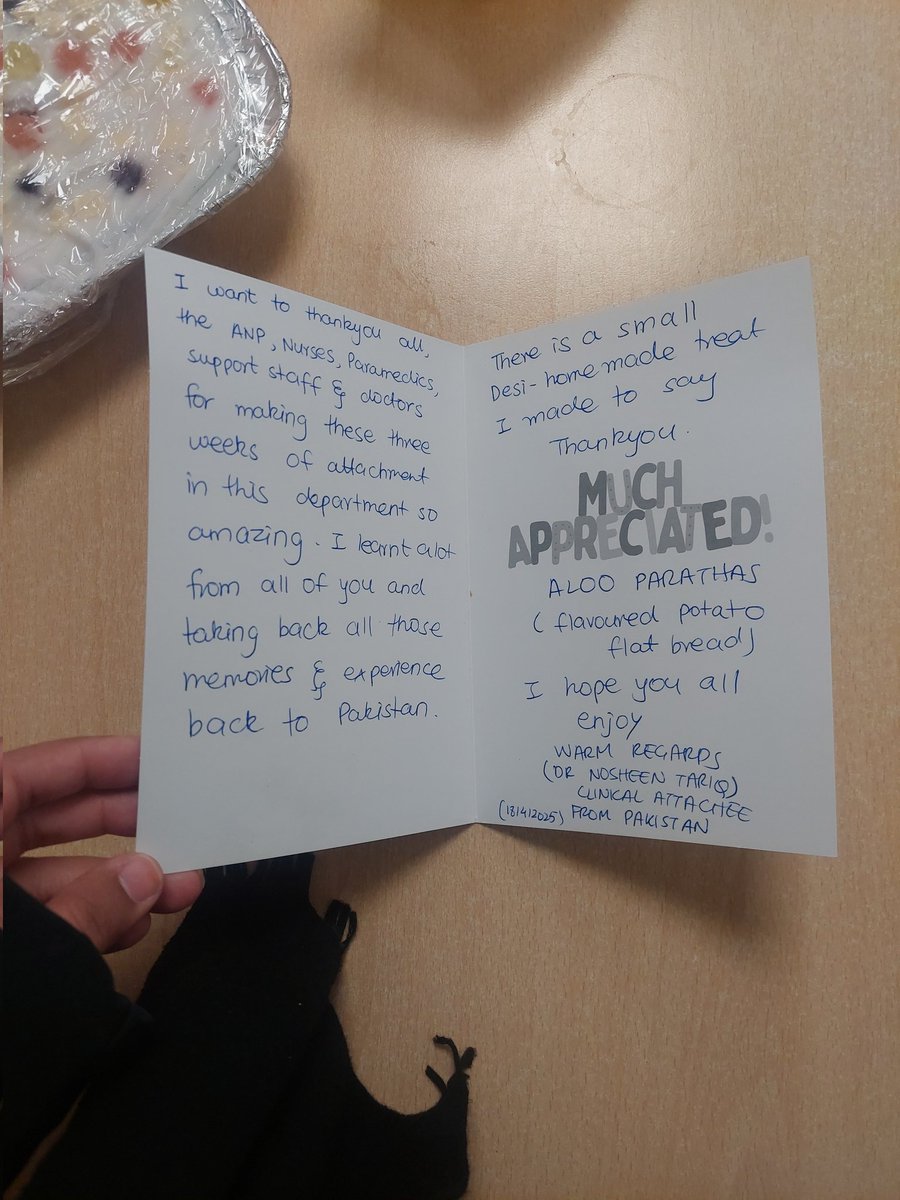 I want to thankyou all,
the ANP, Nurses, Paramedics,
support staff & doctors
for making these three
weeks of attachment
in this department so
amazing. I learnt alot
from all of you and
taking back all those
memories & experience
back to Pakistan.
There is a small
Desi-homemade treat
I made to say
Thankyou.
MUCH
APPRECIATED!
ALOO PARATHAS
(flavoured potato
flat bread)
I hope you all
enjoy
WARM REGARDS
(DR NOSHEEN TARIQ)
CLINICAL ATTACHEE
(18/4/2025) FROM PAKISTAN